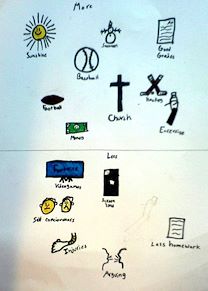 More
Sunshine
Good
Grades
Baseball
Football
Church
Exercise
Money
Less
Videogames
Screen
time
Self consciousness
Injuries
Less homework
Arguing